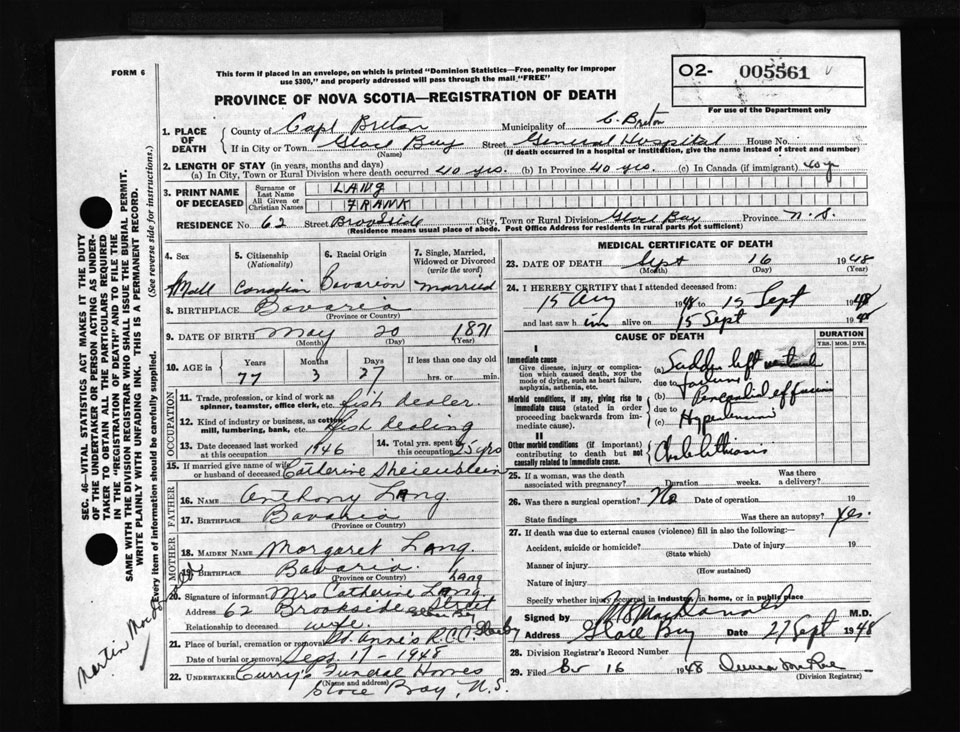 FORM 6
This form if placed in an envelope, on which is printed "Dominion Statistics—Free, penalty for improper
use $300," and properly addressed will pass through the mail "FREE"
02- 005561
For use of the Department only
PROVINCE OF NOVA SCOTIA—REGISTRATION OF DEATH
1. PLACE OF DEATH
County of Cape Breton Municipality of C. Breton
If in City or Town Glace Bay Street General Hospital House No.
(Name) (If death occurred in a hospital or institution, give the name instead of street and number)
2. LENGTH OF STAY (in years, months and days)
(a) In City, Town or Rural Division where death occurred 40 yrs. (b) In Province 40 yrs. (c) In Canada (if immigrant) 40 y
3. PRINT NAME OF DECEASED
Surname or Last Name LANG
All Given or Christian Names FRANK
RESIDENCE No. 62 Street Brookside City, Town or Rural Division Glace Bay Province N.S.
(Residence means usual place of abode. Post Office Address for residents in rural parts not sufficient)
4. Sex
Male
5. Citizenship (Nationality)
Canadian
6. Racial Origin
Bavarian
7. Single, Married, Widowed or Divorced (write the word)
married
8. BIRTHPLACE Bavaria
(Province or Country)
9. DATE OF BIRTH May 20 1871
(Month) (Day) (Year)
10. AGE in Years Months Days If less than one day old
77 3 27 hrs. or min.
OCCUPATION
11. Trade, profession, or kind of work as spinner, teamster, office clerk, etc. fish dealer.
12. Kind of industry or business, as cotton mill, lumbering, bank, etc. fish dealing
13. Date deceased last worked at this occupation 1946
14. Total yrs. spent at this occupation 25 yrs
15. If married give name of wife or husband of deceased Catherine
FATHER
16. NAME Anthony Lang.
17. BIRTHPLACE Bavaria
(Province or Country)
MOTHER
18. MAIDEN NAME Margaret Lang.
19. BIRTHPLACE Bavaria.
(Province or Country)
Lang
20. Signature of informant Mrs Catherine Lang.
Address 62 Brookside Street
Glace Bay
Relationship to deceased wife.
21. Place of burial, cremation or removal St. Anne's R.C.C. Glace Bay
Date of burial or removal Sept. 17 - 1948
22. UNDERTAKER Curry's Funeral Homes
(Name and address) Glace Bay, N.S.
MEDICAL CERTIFICATE OF DEATH
23. DATE OF DEATH Sept 16 1948
(Month) (Day) (Year)
24. I HEREBY CERTIFY that I attended deceased from:
15 Aug 1948 to 15 Sept 1948
and last saw him alive on 15 Sept 1948
CAUSE OF DEATH DURATION
YRS. MOS. DYS.
I
Immediate cause
Give disease, injury or complication which caused death, not the mode of dying, such as heart failure, asphyxia, asthenia, etc.
(a) Sudden left ventricul
due to failure
Morbid conditions, if any, giving rise to immediate cause (stated in order proceeding backwards from immediate cause).
(b) Pericardial effusion
due to
(c) Hypertension
II
Other morbid conditions (if important) contributing to death but not causally related to immediate cause.
Cholelithiasis
25. If a woman, was the death associated with pregnancy? Duration weeks. Was there a delivery?
26. Was there a surgical operation? No Date of operation 19
State findings Was there an autopsy? Yes.
27. If death was due to external causes (violence) fill in also the following:—
Accident, suicide or homicide? Date of injury 19
(State which)
Manner of injury
(How sustained)
Nature of injury
Specify whether injury occurred in industry, in home, or in public place
Signed by MacDonald M.D.
Address Glace Bay Date 27 Sept 1948
28. Division Registrar's Record Number
29. Filed 16 1948
(Division Registrar)
SEC. 46—VITAL STATISTICS ACT MAKES IT THE DUTY
OF THE UNDERTAKER OR PERSON ACTING AS UNDERTAKER TO OBTAIN ALL THE PARTICULARS REQUIRED
IN THE "REGISTRATION OF DEATH" AND TO FILE THE
SAME WITH THE DIVISION REGISTRAR WHO SHALL ISSUE THE BURIAL PERMIT.
WRITE PLAINLY WITH UNFADING INK. THIS IS A PERMANENT RECORD.
Every item of information should be carefully supplied. (See reverse side for instructions.)
Martin